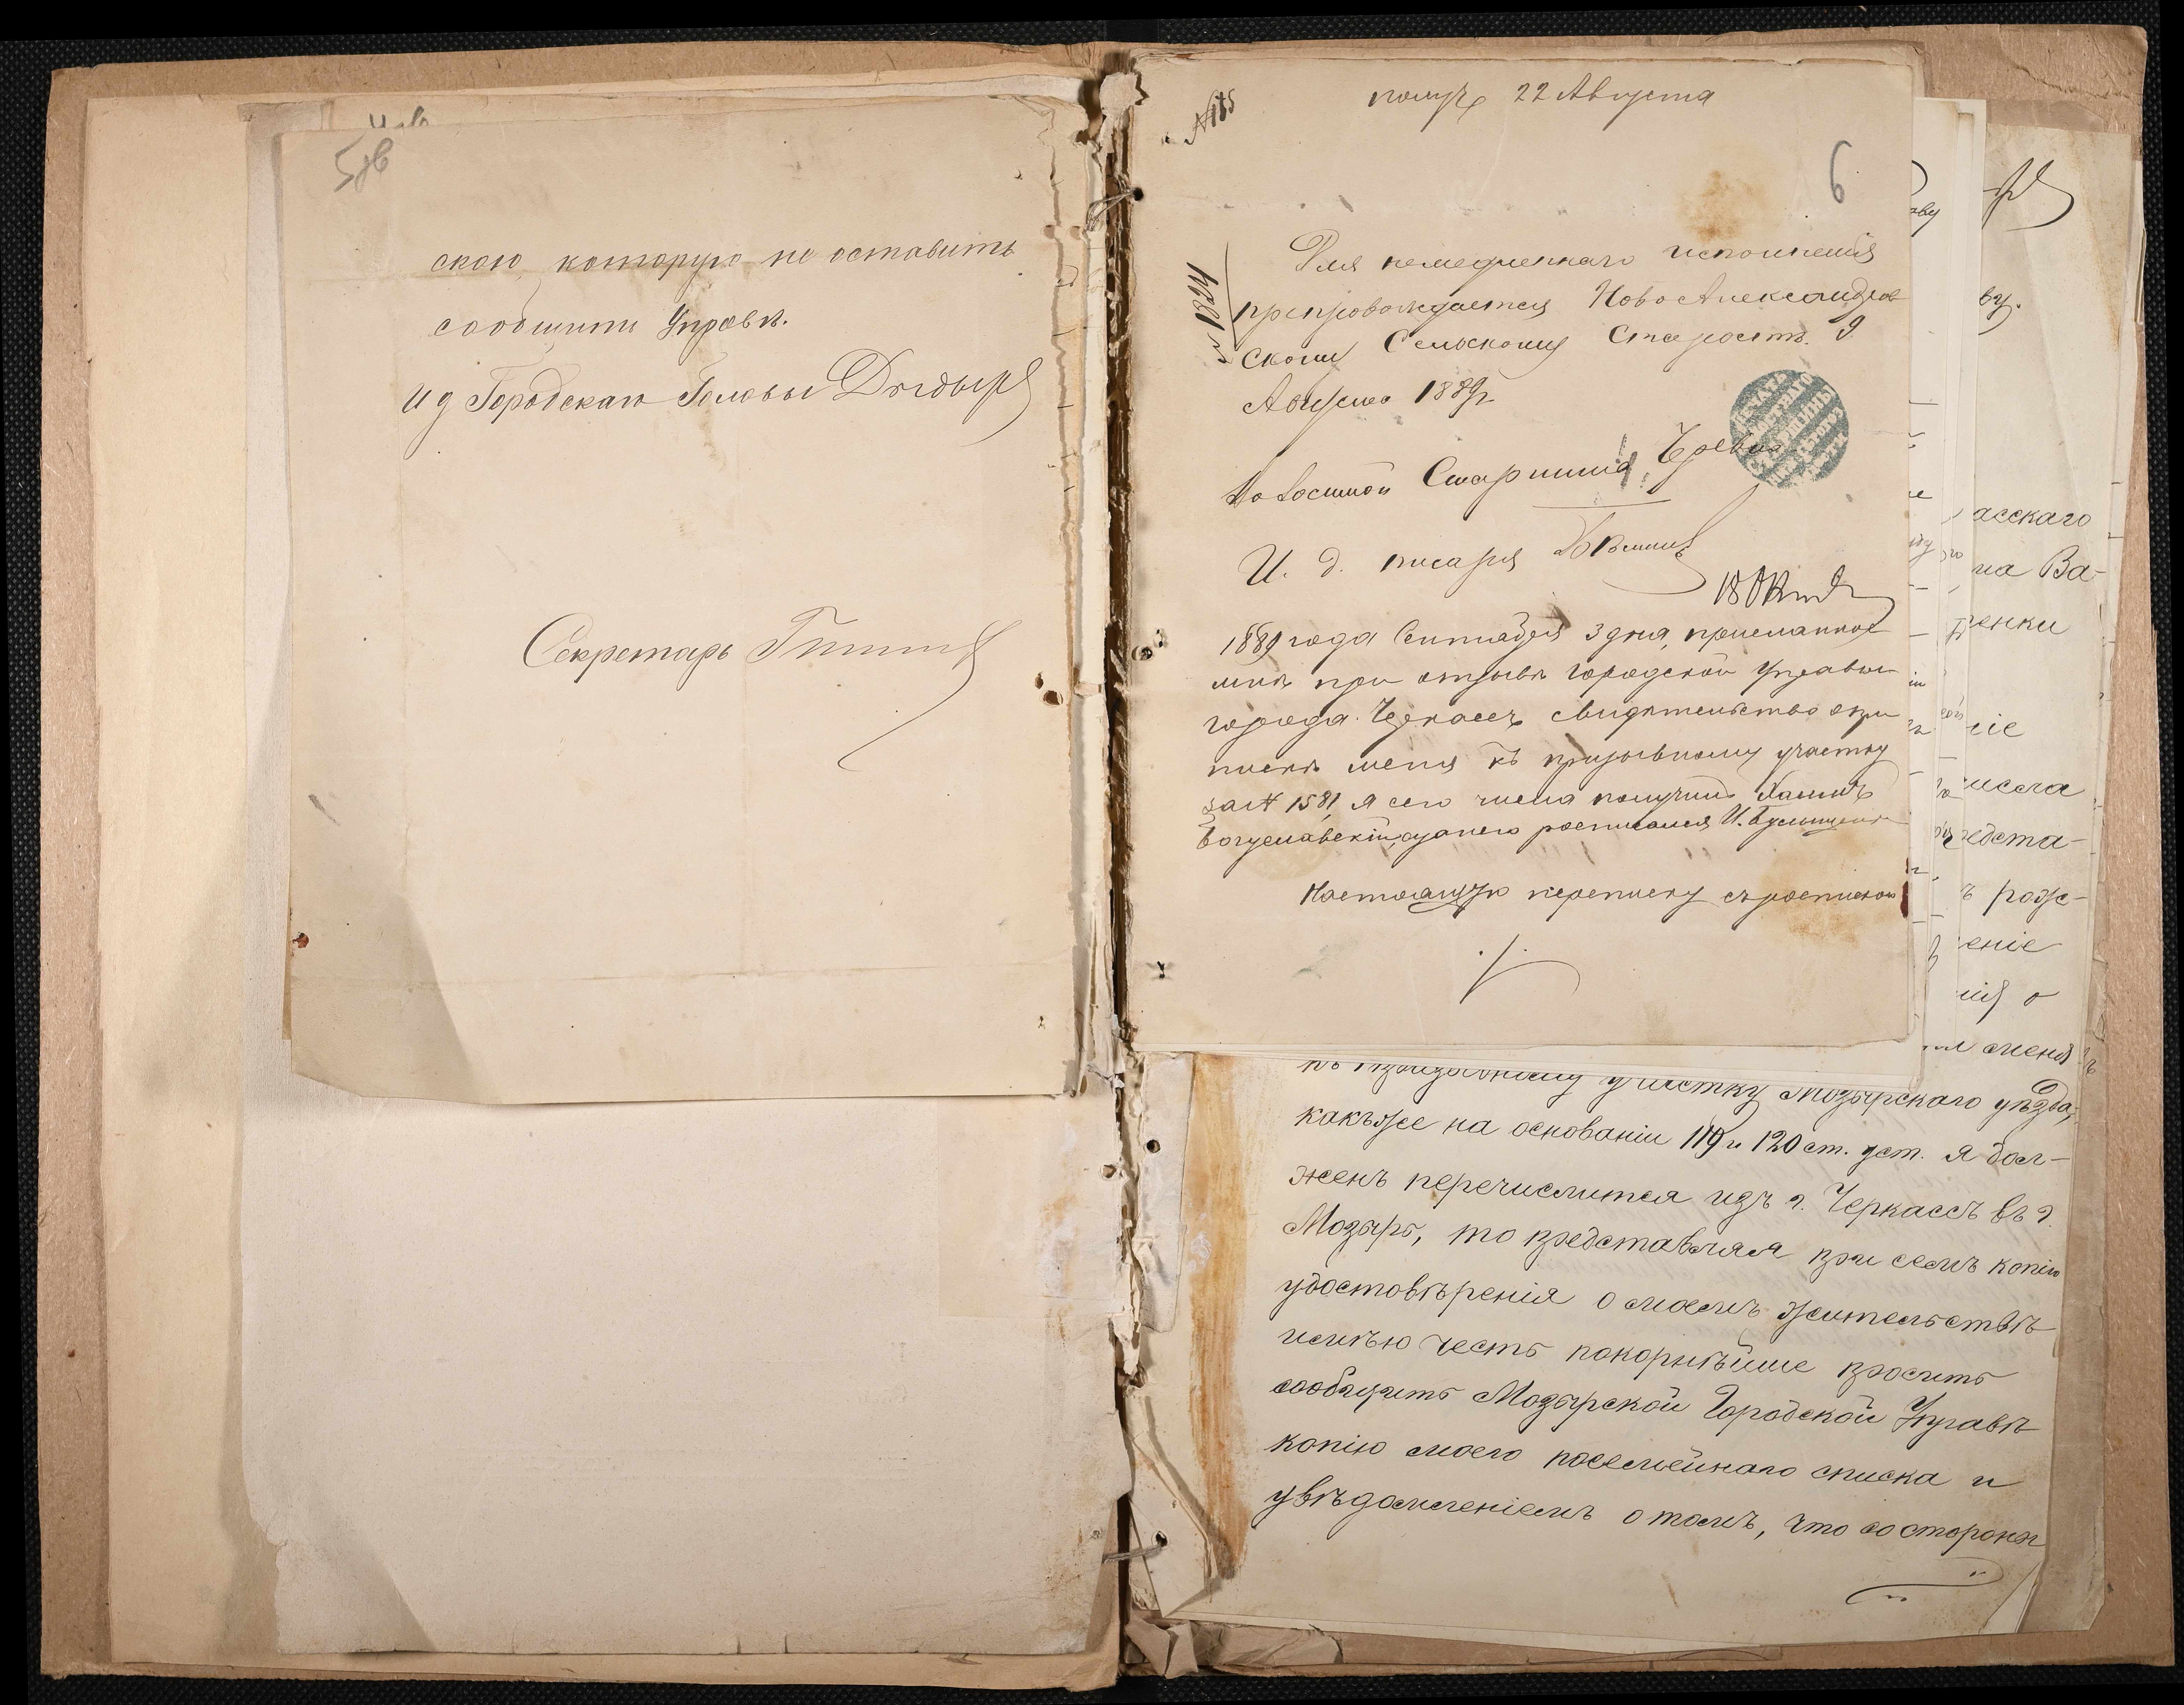 5об
скою, которую не оставить
сообщить Управѣ.
И д Городскаго Головы
Секретарь
№ 185
получ 22 Августа
6
№ 1234
Для немедленнаго исполненія
препровождается Ново Александров
скому Сельскому Старостѣ. 9
Августа 1889 г
Волостной Старшина
И. д. писаря
1889 года Сентября 3 дня, присланное
мнѣ при отзывѣ городской Управы
города Черкассъ свидѣтельство о при
пискѣ меня къ призывному участку
за № 1581, я сего числа получилъ Хаимъ
Богуславскій, а за него росписался И.
Настоящую переписку съ роспискою
къ призывному участку Мозырскаго уѣзда,
какъ же на основаніи 119 и 120 ст. уст. я дол-
женъ перечислится изъ г. Черкассъ въ г.
Мозырь, то представляя при семъ копію
удостовѣренія о моемъ жительствѣ
имѣю честь покорнѣйше просить
сообщить Мозырской Городской Управѣ
копію моего посемейнаго списка и
увѣдомленіемъ о томъ, что со стороны
асскаго
на Ва-
ренки
ніе
числа
редста-
ъ рож-
еніе
нія о
меня